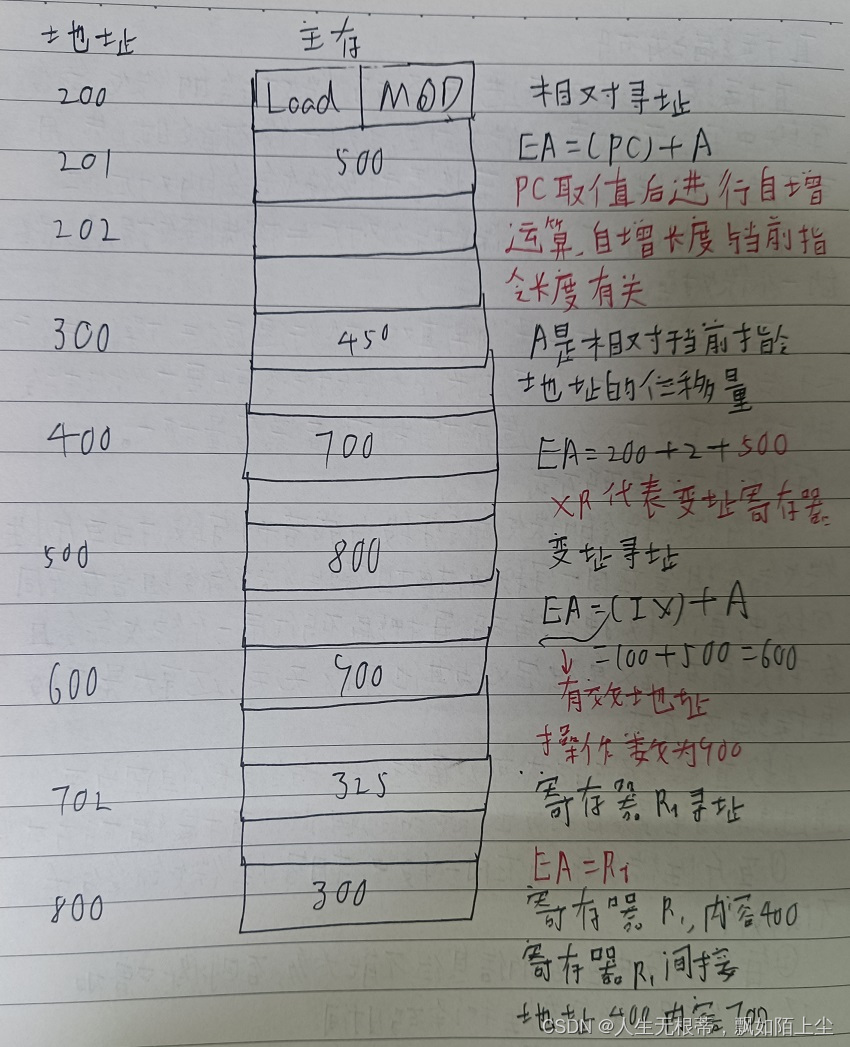 地址 主存
200 Load MOD 相对寻址
201 500 EA=(PC)+A
PC取值后进行自增
202 运算,自增长度与当前指
令长度有关
300 450 A是相对于当前指令
地址的位移量
400 700 EA=200+2+500
XR代表变址寄存器
500 800 变址寻址
EA=(IX)+A
600 900 =100+500=600
有效地址
操作数为900
702 325 寄存器R1寻址
EA=R1
800 300 寄存器R1,内容400
寄存器R1间接
地址400内容700
CSDN @人生无根蒂,飘如陌上尘